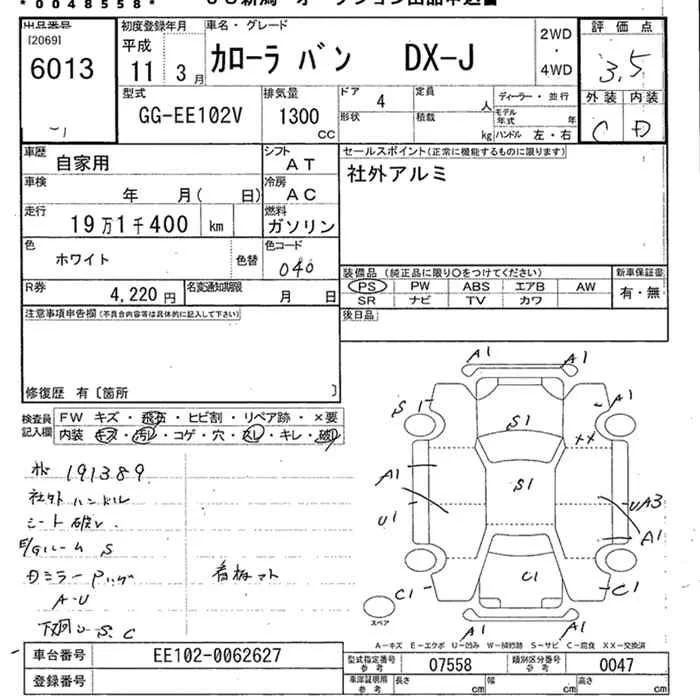 *0048558*
出品番号
[2069]
6013
初度登録年月
平成
11 3月
車名・グレード
カローラ バン DX-J
2WD
・
4WD
評価点
3.5
外装 内装
C D
型式
GG-EE102V
排気量
1300
cc
ドア
4
形状
定員
人
積載
kg
ディーラー・並行
モデル年式 年
ハンドル 左・右
車歴
自家用
シフト
AT
車検
年 月( 日)
冷房
AC
走行
19万1千400 km
燃料
ガソリン
色
ホワイト
色替
色コード
040
R券
4,220円
名変通知期限
月 日
セールスポイント(正常に機能するものに限ります)
社外アルミ
装備品(純正品に限り○をつけてください)
PS PW ABS エアB AW
SR ナビ TV カワ
新車保証書
有・無
後日品
注意事項申告欄(不具合内容等は具体的に記入して下さい)
修復歴 有〔箇所 〕
検査員
記入欄
FW キズ・飛石・ヒビ割・リペア跡・×要
内装 キズ・汚レ・コゲ・穴・スレ・キレ・破レ
191389
社外ハンドル
シート破レ
E/Gルーム S
A-U
S.C
看板マト
A1 A1
S1 A1
S1
XX
S1
A1
U1
UA3
A1
C1 C1 C1
A1 A1
スペア
A-キズ E-エクボ U-凹み W-補修跡 S-サビ C-腐食 XX-交換済
車台番号 EE102-0062627
登録番号
型式指定番号
参考
07558
類別区分番号
参考
0047
車庫証明用
参考
長さ cm 幅 cm 高さ cm